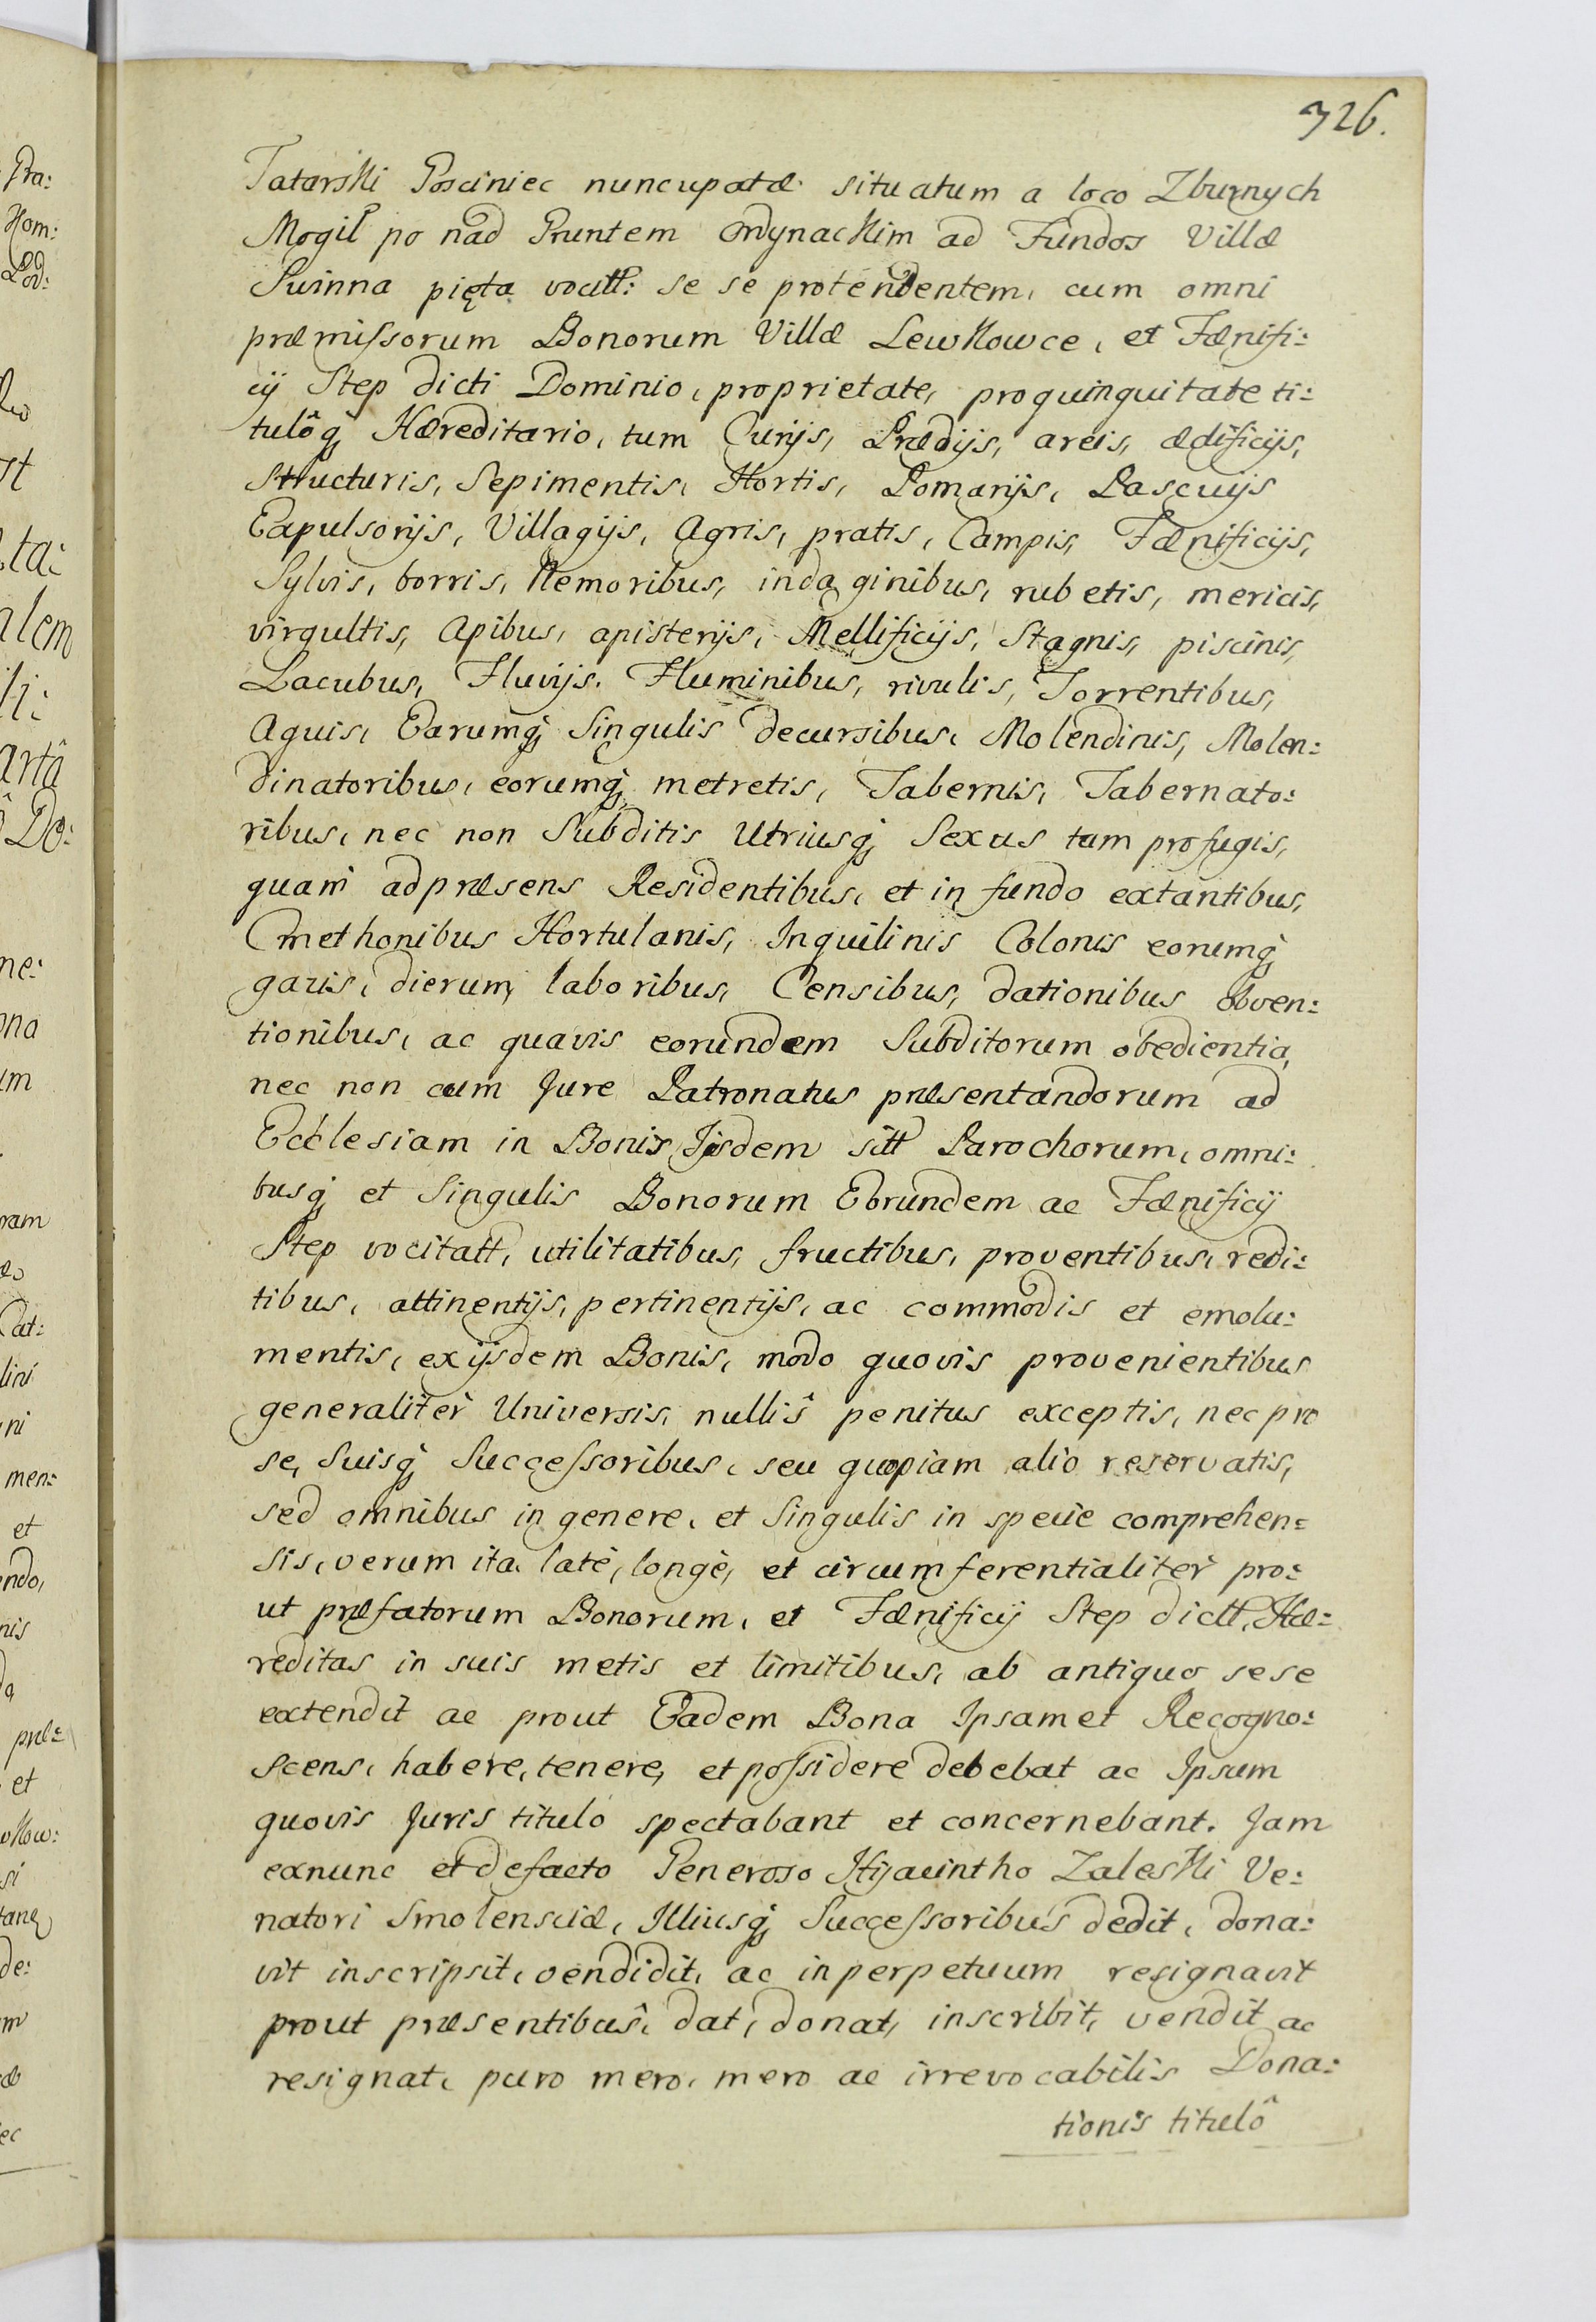 326.
Tatarski Gosciniec nuncupatæ situatum a loco Zburnych
Mogił po nad Gruntem Ordynackim ad Fundos Villæ
Swinna pięta vocitt: se se protendentem, cum omni
præmissorum Bonorum Villæ Lewkowce, et Fænifi:
cij Step dicti Dominio, proprietate, proquinquitate ti:
tulôq; Hæreditario, tum Curijs, Prædijs, areis, ædificijs,
Structuris, Sepimentis, Hortis, Pomarijs, Pascuijs
Expulsorijs, Villagijs, Agris, pratis, Campis, Fænificijs,
Sylvis, borris, Nemoribus, indaginibus, rubetis, mericis,
virgultis, Apibus, apisterijs, Mellificijs, Stagnis, piscinis,
Lacubus, Fluvijs. Fluminibus, rivulis, Torrentibus,
Aquis, Earumq; Singulis decursibus, Molendinis, Molen:
dinatoribus, eorumq; metretis, Tabernis, Tabernato:
ribus, nec non Subditis Utriusq; Sexus tam profugis,
quam ad præsens Residentibus, et in fundo extantibus,
Cmethonibus Hortulanis, Inquilinis Colonis eorumq;
gazis, dierum, laboribus, Censibus, dationibus obven:
tionibus, ac quavis eorundem Subditorum obedientia,
nec non cum Jure Patronatus præsentandorum ad
Ecclesiam in Bonis Ijsdem sitt Parochorum, omni:
busq; et Singulis Bonorum Eorundem ac Fænificij
Step vocitatt, utilitatibus, fructibus, proventibus, redi:
tibus, attinentijs, pertinentijs, ac commodis et emolu:
mentis, ex ijsdem Bonis, modo quovis provenientibus
generalitèr Universis, nullis penitus exceptis, nec pro
se, Suisq; Successoribus, seu quopiam alio reservatis,
sed omnibus in genere, et Singulis in specie comprehen:
sis, verum ita latè, longè, et circumferentialitèr pro:
ut præfatorum Bonorum, et Fænificij Step dictt, Hæ:
reditas in suis metis et limitibus, ab antiquo sese
extendit ac prout Eadem Bona Ipsamet Recogno:
scens, habere, tenere, et possidere debebat ac Ipsum
quovis Juris titulo spectabant et concernebant. Jam
exnunc et defacto Generoso Hijacintho Zaleski Ve:
natori Smolensciæ, Illiusq; Successoribus dedit, dona:
vit inscripsit, vendidit, ac in perpetuum resignavit
prout præsentibus, dat, donat, inscribit, vendit ac
resignat, puro mero, mero ac irrevocabilis Dona:
tionis titulô